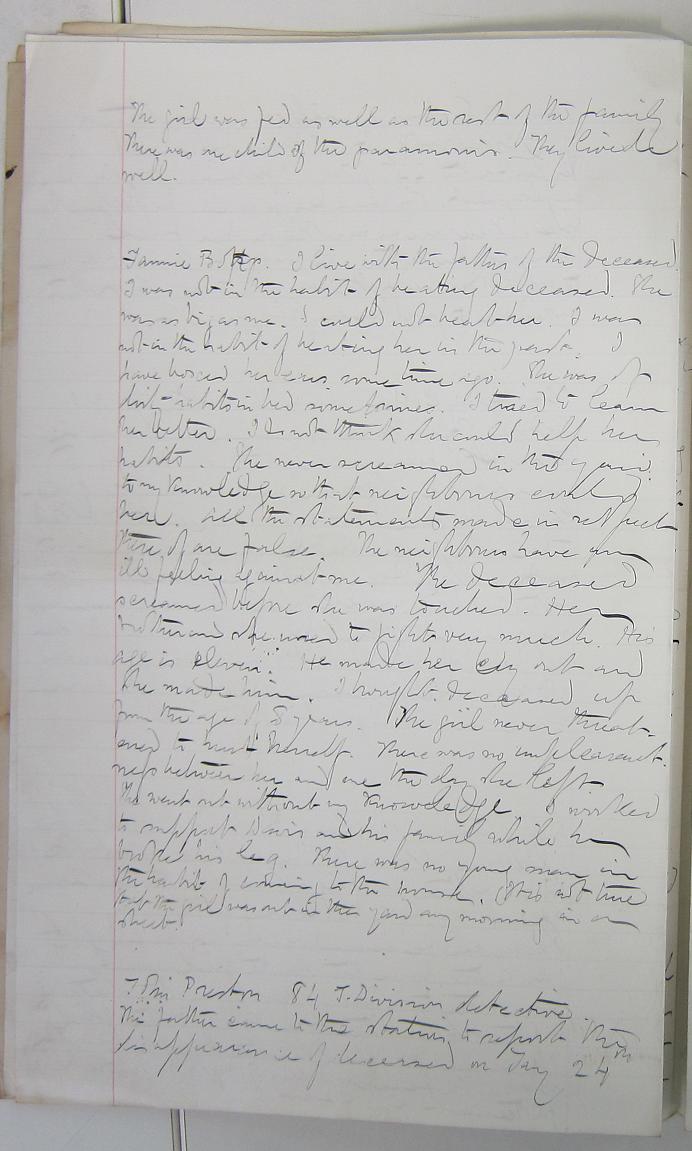 The girl was fed as well as the rest of the family
There was one child of the paramours. They lived
well.
Fannie Botten. I live with the father of the deceased.
I was not in the habit of beating deceased. She
was as big as me. I could not beat her. I was
not in the habit of beating her in the past. I
have boxed her ears some time ago. She was of
dirty habits in bed sometimes. I tried to learn
her better. I do not think she could help her
habits. She never screamed in the yard
to my knowledge so that neighbours could
hear. All the statements made in respect
there of are false. The neighbours have an
ill feeling against me. The deceased
screamed before she was touched. Her
brother and she used to fight very much. His
age is eleven. He made her cry out and
she made him. I brought deceased up
from the age of 8 years. The girl never threat-
ened to hurt herself. There was no unpleasant-
ness between her and me the day she left
She went out without my knowledge I worked
to support Davis and his family while he
broke his leg. There was no young man in
the habit of coming to the house. It is not true
that the girl was out in the yard any morning in a
sheet.
John Preston 84 J. Division detective.
The father came to the station to report the
disappearance of deceased on Jany 24th